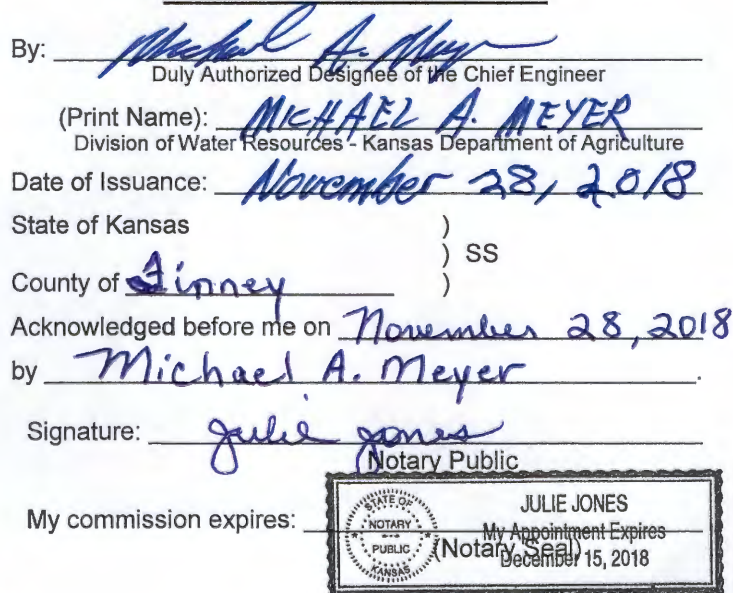 By: Michael A. Meyer
Duly Authorized Designee of the Chief Engineer
(Print Name): MICHAEL A. MEYER
Division of Water Resources - Kansas Department of Agriculture
Date of Issuance: November 28, 2018
State of Kansas )
) SS
County of Finney )
Acknowledged before me on November 28, 2018
by Michael A. Meyer.
Signature: Julie Jones
Notary Public
My commission expires:
(Notary Seal)
STATE OF KANSAS
NOTARY PUBLIC
JULIE JONES
My Appointment Expires
December 15, 2018